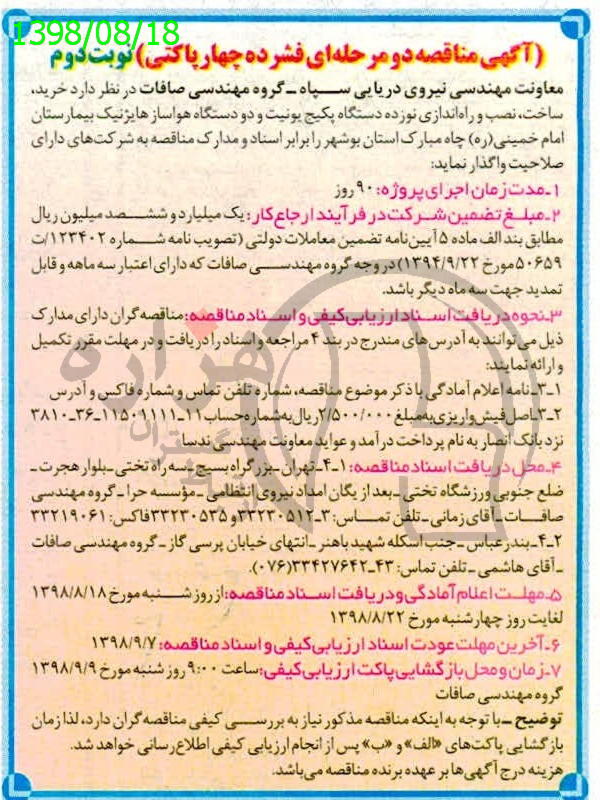 1398/08/18
(آگهی مناقصه دو مرحله‌ای فشرده چهار پاکتی) نوبت دوم
معاونت مهندسی نیروی دریایی سپاه ـ گروه مهندسی صافات در نظر دارد خرید،
ساخت، نصب و راه‌اندازی نوزده دستگاه پکیج یونیت و دو دستگاه هواساز هایژنیک بیمارستان
امام خمینی(ره) چاه مبارک استان بوشهر را برابر اسناد و مدارک مناقصه به شرکت‌های دارای
صلاحیت واگذار نماید:
۱ـ مدت زمان اجرای پروژه: ۹۰ روز
۲ـ مبلغ تضمین شرکت در فرآیند ارجاع کار: یک میلیارد و ششصد میلیون ریال
مطابق بند الف ماده ۵ آیین‌نامه تضمین معاملات دولتی (تصویب نامه شماره ۱۲۳۴۰۲/ت
۵۰۶۵۹ مورخ ۱۳۹۴/۹/۲۲) در وجه گروه مهندسی صافات که دارای اعتبار سه ماهه و قابل
تمدید جهت سه ماه دیگر باشد.
۳ـ نحوه دریافت اسناد ارزیابی کیفی و اسناد مناقصه: مناقصه‌گران دارای مدارک
ذیل می‌توانند به آدرس‌های مندرج در بند ۴ مراجعه و اسناد را دریافت و در مهلت مقرر تکمیل
و ارائه نمایند:
۳ـ۱ـ نامه اعلام آمادگی با ذکر موضوع مناقصه، شماره تلفن تماس و شماره فاکس و آدرس
۳ـ۲ـ اصل فیش واریزی به مبلغ ۲/۵۰۰/۰۰۰ ریال به شماره حساب ۱۱ـ۱۱۵۰۱۱۱۱ـ۳۶ـ۳۸۱۰
نزد بانک انصار به نام پرداخت درآمد و عواید معاونت مهندسی ندسا
۴ـ محل دریافت اسناد مناقصه: ۴ـ۱ـ تهران ـ بزرگراه بسیج ـ سه راه تختی ـ بلوار هجرت ـ
ضلع جنوبی ورزشگاه تختی ـ بعد از یگان امداد نیروی انتظامی ـ مؤسسه حرا ـ گروه مهندسی
صافات ـ آقای زمانی ـ تلفن تماس: ۳ـ۳۳۲۳۰۵۱۲ و ۳۳۲۳۰۵۳۵ فاکس: ۳۳۲۱۹۰۶۱
۴ـ۲ـ بندرعباس ـ جنب اسکله شهید باهنر ـ انتهای خیابان پرسی گاز ـ گروه مهندسی صافات
ـ آقای هاشمی ـ تلفن تماس: ۴۳ـ۳۳۴۲۷۶۴۲(۰۷۶).
۵ـ مهلت اعلام آمادگی و دریافت اسناد مناقصه: از روز شنبه مورخ ۱۳۹۸/۸/۱۸
لغایت روز چهارشنبه مورخ ۱۳۹۸/۸/۲۲
۶ـ آخرین مهلت عودت اسناد ارزیابی کیفی و اسناد مناقصه: ۱۳۹۸/۹/۷
۷ـ زمان و محل بازگشایی پاکت ارزیابی کیفی: ساعت ۹:۰۰ روز شنبه مورخ ۱۳۹۸/۹/۹
گروه مهندسی صافات
توضیح ـ با توجه به اینکه مناقصه مذکور نیاز به بررسی کیفی مناقصه‌گران دارد، لذا زمان
بازگشایی پاکت‌های «الف» و «ب» پس از انجام ارزیابی کیفی اطلاع‌رسانی خواهد شد.
هزینه درج آگهی‌ها بر عهده برنده مناقصه می‌باشد.
هزاره